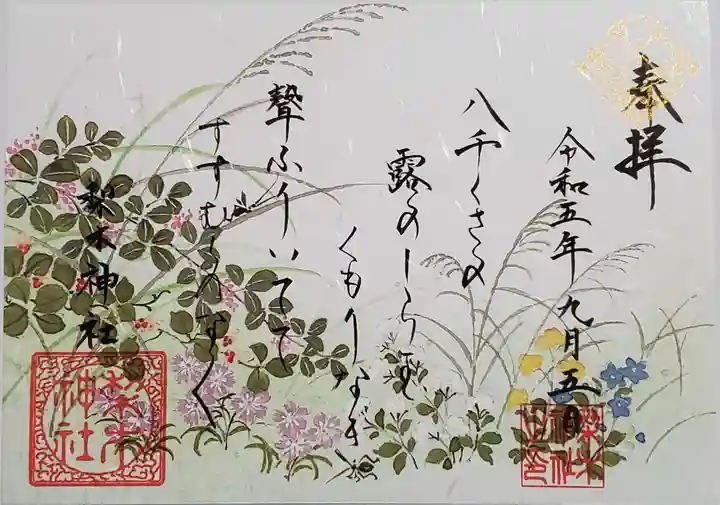 奉拝
令和五年九月五日
八千くさの
露のしらず
くもりなき
聲ふりいてて
すずむしのなく
梨木神社
梨木
神社